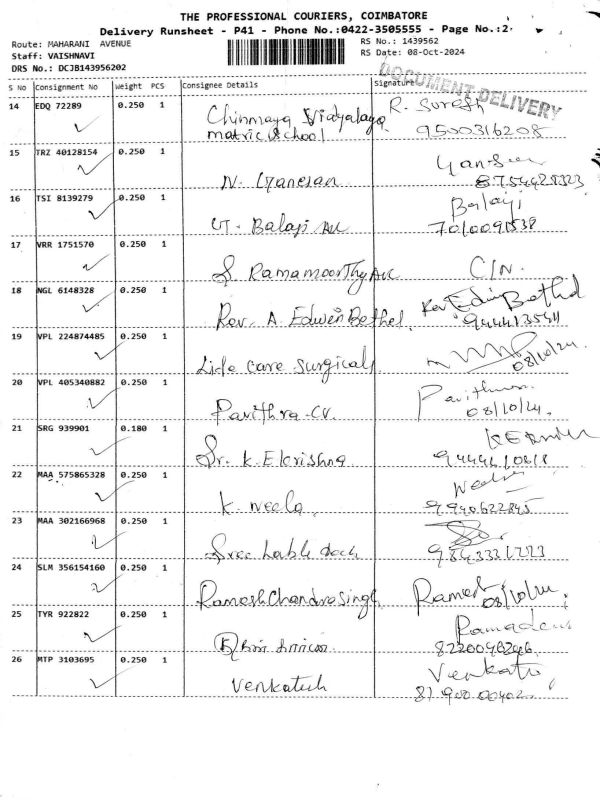 THE PROFESSIONAL COURIERS, COIMBATORE
Delivery Runsheet - P41 - Phone No.:0422-3505555 - Page No.:2
Route: MAHARANI AVENUE
RS No.: 1439562
Staff: VAISHNAVI
RS Date: 08-Oct-2024
DRS No.: DCJB143956202
DOCUMENT DELIVERY
S No Consignment No Weight PCS Consignee Details Signature
14 EDQ 72289 0.250 1 Chinmaya Vidyalaya R. Suresh
matric school 9500316208
15 TRZ 40128154 0.250 1
N. Ganesan 8754428323
16 TSI 8139279 0.250 1 Balaji
Balaji 7010091538
17 VRR 1751570 0.250 1
S Ramamoorthy C/N.
18 NGL 6148328 0.250 1 Rev Edwin Bethel
Rev. A. Edwin Bethel 9444135411
19 VPL 224874485 0.250 1
Life care surgicals 08/10/24
20 VPL 405340882 0.250 1 Pavithra
Pavithra-CV. 08/10/24
21 SRG 939901 0.180 1
Dr. K. E Krishna
22 MAA 575865328 0.250 1
K. Neela 9940622845
23 MAA 302166968 0.250 1
Sree
24 SLM 356154160 0.250 1
Ramesh Chandra Singh Ramesh 08/10/24
25 TYR 922822 0.250 1
8220046246
26 MTP 3103695 0.250 1 Venkat
Venkatesh